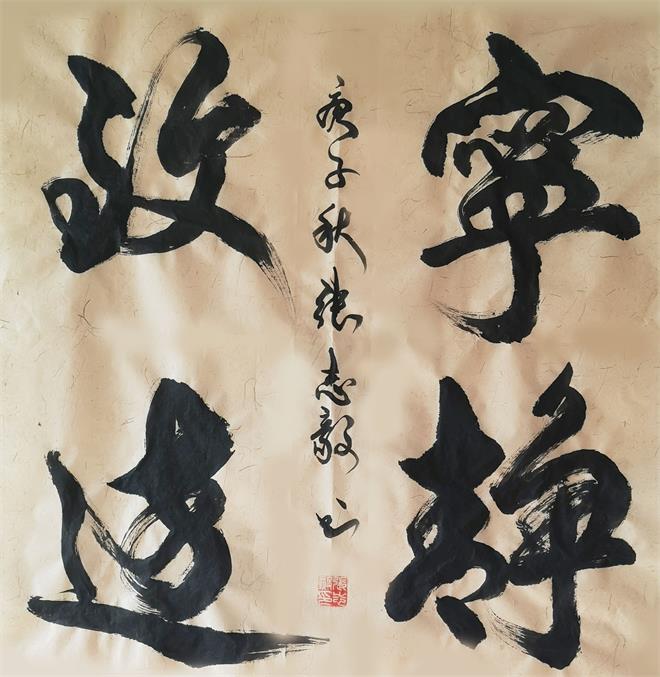 寧靜
致遠
庚子秋張志毅书